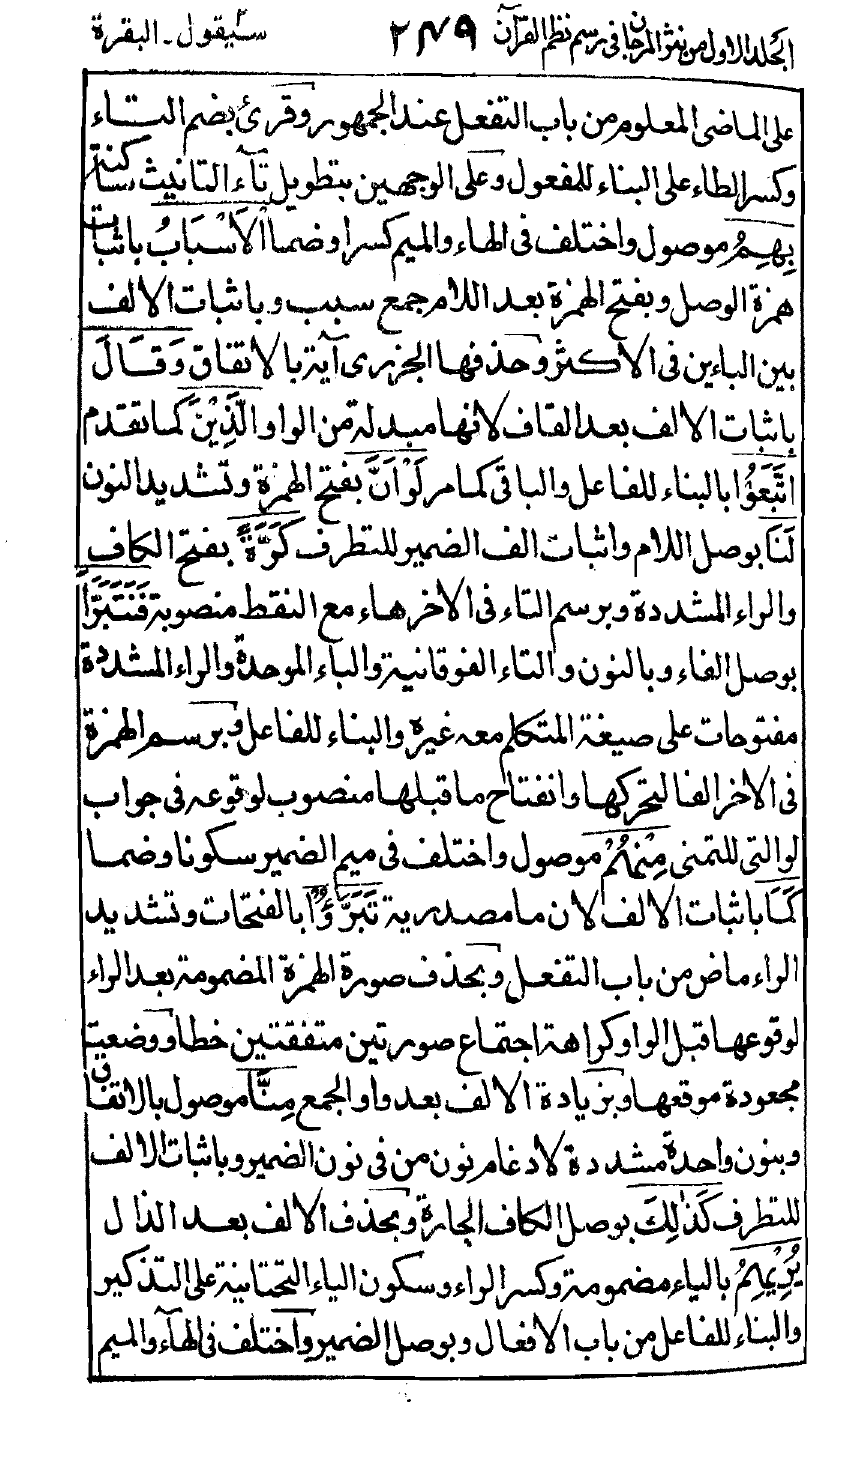 الجلد الاول من نثر المرجان في رسم نظم القرآن ٢٤٩ سيقول - البقرة
على الماضى المعلوم من باب التفعل عند الجمهور وقرئ بضم التاء
وكسر الطاء على البناء للمفعول وعلى الوجهين بتطويل تآء التانيث ساكنة
بِهِمُ موصول واختلف فى الهاء والميم كسرا وضما الْاَسْبَابُ باثبات
همزة الوصل وبفتح الهمزة بعد اللام جمع سبب وباثبات الالف
بين الباءين فى الاكثر وحذفها الجزرى آية بالاتفاق وَقَالَ
باثبات الالف بعد القاف لانها مبدلة من الواو الَّذِيْنَ كما تقدم
اتَّبَعُوْا بالبناء للفاعل والباقى كما مر لَوْ اَنَّ بفتح الهمزة وتشديد النون
لَنَا بوصل اللام واثبات الف الضمير للتطرف كَرَّةً بفتح الكاف
والراء المشددة وبرسم التاء فى الاخر هاء مع النقط منصوبة فَنَتَبَرَّاَ
بوصل الفاء وبالنون والتاء الفوقانية والباء الموحدة والراء المشددة
مفتوحات على صيغة المتكلم معه غيره والبناء للفاعل وبرسم الهمزة
فى الاخر الفا لتحركها وانفتاح ما قبلها منصوب لوقوعه فى جواب
لو التى للتمنى مِنْهُمْ موصول واختلف فى ميم الضمير سكونا وضما
كَمَا باثبات الالف لان ما مصدرية تَبَرَّءُوْا بالفتحات وتشديد
الراء ماض من باب التفعل وبحذف صورة الهمزة المضمومة بعد الراء
لوقوعها قبل الواو كراهة اجتماع صورتين متفقتين خطا ووضعت
مجعودة موقعها وبزيادة الالف بعد واو الجمع مِنَّا موصول بالاتفاق
وبنون واحدة مشددة لادغام نون من فى نون الضمير وباثبات الالف
للتطرف كَذٰلِكَ بوصل الكاف الجارة وبحذف الالف بعد الذال
يُرِيْهِمُ بالياء مضمومة وكسر الراء وسكون الياء التحتانية على التذكير
والبناء للفاعل من باب الافعال وبوصل الضمير واختلف فى الهآء والميم